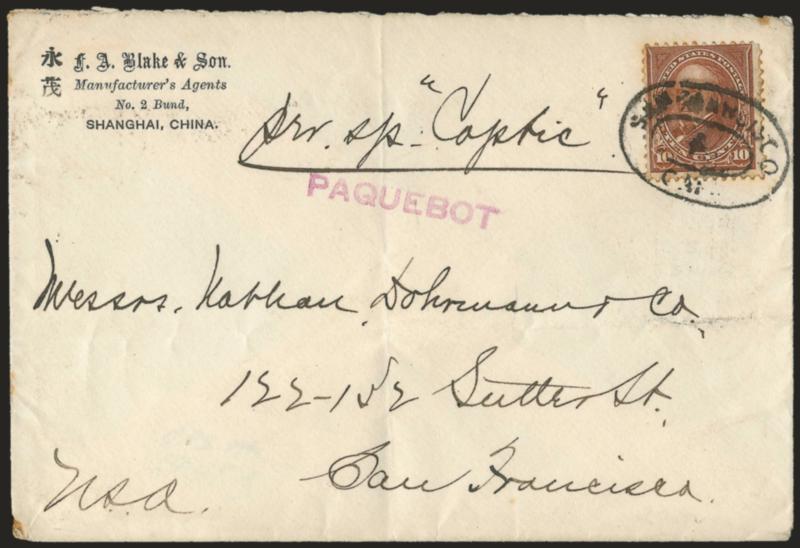 永茂
F. A. Blake & Son.
Manufacturer's Agents
No. 2 Bund,
SHANGHAI, CHINA.
UNITED STATES POSTAGE
10 TEN CENTS 10
SAN FRANCISCO
CAL
"Coptic"
PAQUEBOT
Messrs. Nathan, Dohrmann & Co.
122-132 Sutter St.
San Francisco.
U.S.A.